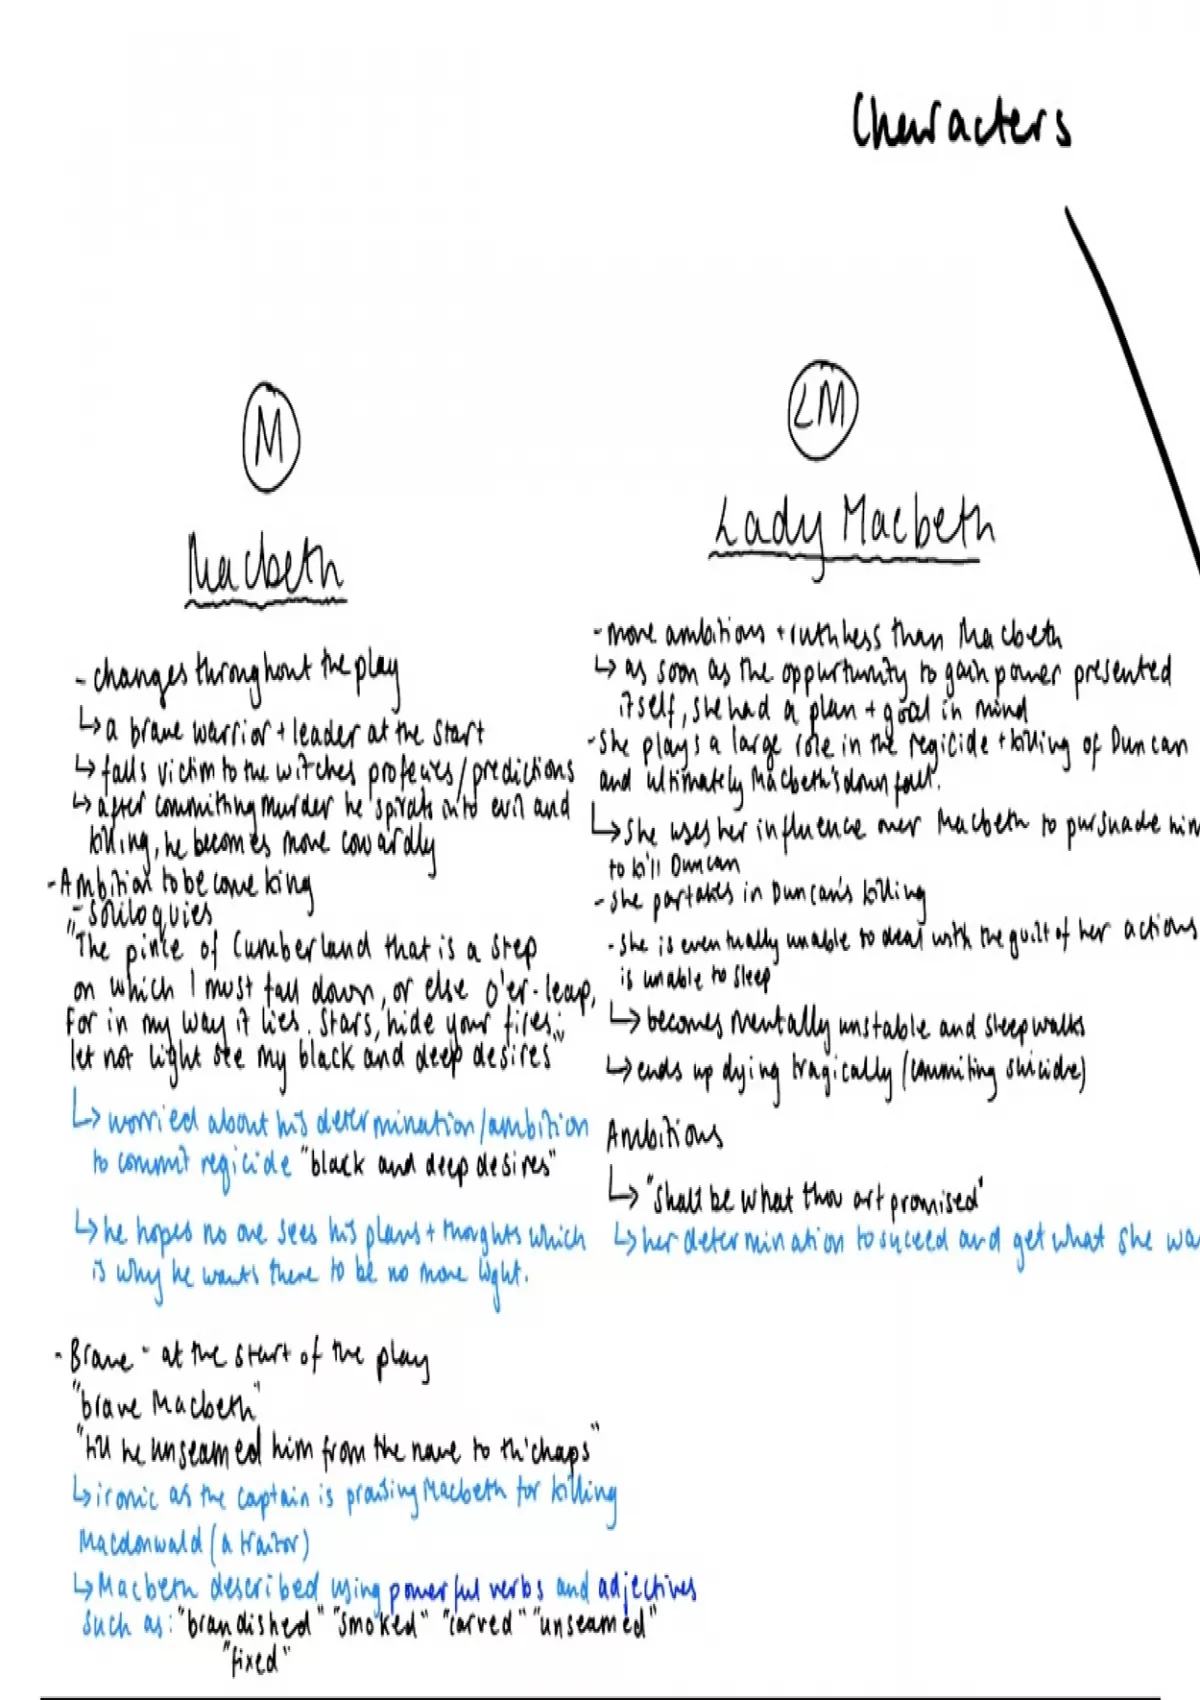 Characters
M
Macbeth
- changes throughout the play
↳ a brave warrior + leader at the start
↳ falls victim to the witches profecies/predictions
↳ after committing murder he spirals into evil and
killing, he becomes more cowardly
- Ambition to become king
- soliloquies
"The pince of Cumberland that is a step
on which I must fall down, or else o'er-leap,
for in my way it lies. Stars, hide your fires;
let not light see my black and deep desires"
↳ worried about his determination/ambition
to commit regicide "black and deep desires"
↳ he hopes no one sees his plans + thoughts which
is why he wants there to be no more light.
- Brave - at the start of the play
"brave Macbeth"
"till he unseamed him from the nave to th'chaps"
↳ ironic as the captain is praising Macbeth for killing
Macdonwald (a traitor)
↳ Macbeth described using powerful verbs and adjectives
such as: "brandished" "smoked" "carved" "unseamed"
"fixed"
LM
Lady Macbeth
- more ambitious + ruthless than Macbeth
↳ as soon as the oppurtunity to gain power presented
itself, she had a plan + goal in mind
- She plays a large role in the regicide + killing of Duncan
and ultimately Macbeth's downfall.
↳ she uses her influence over Macbeth to pursuade him
to kill Duncan
- she partakes in Duncan's killing
- she is eventually unable to deal with the guilt of her actions
is unable to sleep
↳ becomes mentally unstable and sleepwalks
↳ ends up dying tragically (commiting suicide)
Ambitions
↳ "shalt be what thou art promised"
↳ her determination to succeed and get what she wa